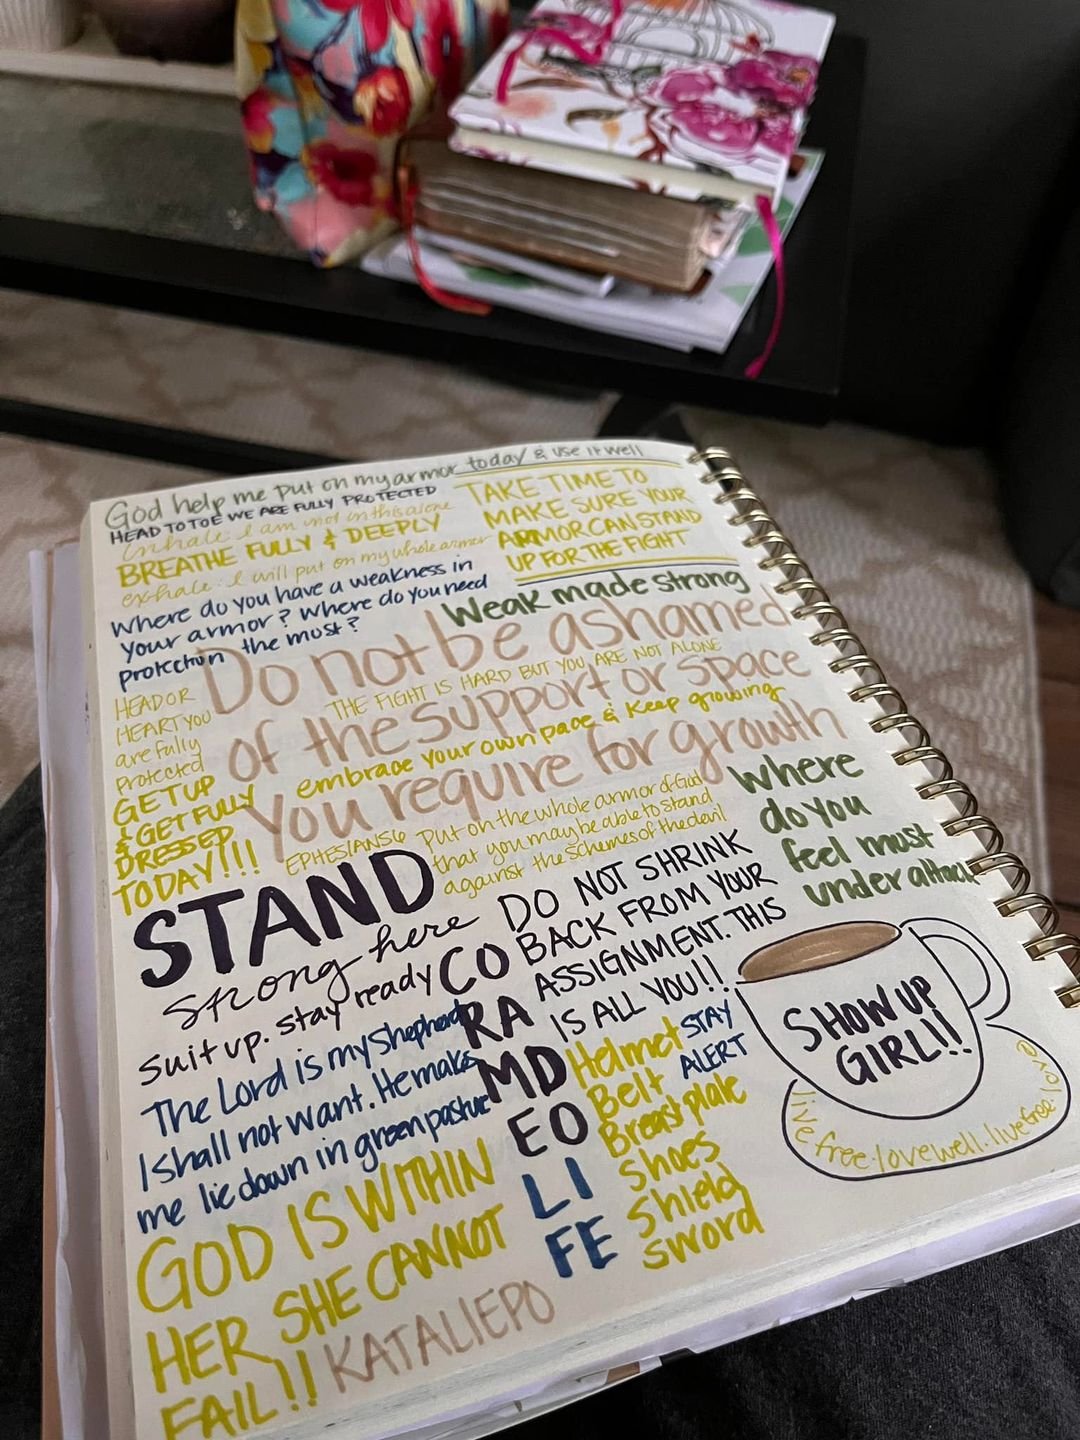 God help me put on my armor today & use it well
HEAD TO TOE WE ARE FULLY PROTECTED
inhale: I am not in this alone
BREATHE FULLY & DEEPLY
exhale: I will put on my whole armor
TAKE TIME TO
MAKE SURE YOUR
ARMOR CAN STAND
UP FOR THE FIGHT
Where do you have a weakness in
your armor? Where do you need
protection the most?
Weak made strong
Do not be ashamed
THE FIGHT IS HARD BUT YOU ARE NOT ALONE
of the support or space
embrace your own pace & keep growing
you require for growth
HEAD OR
HEART YOU
are fully
protected
GET UP
& GET FULLY
DRESSED
TODAY!!!
EPHESIANS 6 put on the whole armor of God
that you may be able to stand
against the schemes of the devil
Where
do you
feel must
under attack
STAND
strong here
suit up. stay ready
DO NOT SHRINK
BACK FROM YOUR
ASSIGNMENT. THIS
IS ALL YOU!!
CO
RA
MD
EO
LI
FE
The Lord is my Shepherd
I shall not want. He makes
me lie down in green pasture
Helmet
Belt
Breast plate
Shoes
Shield
Sword
STAY
ALERT
SHOW UP
GIRL!!
live free. love well. live free. love
GOD IS WITHIN
HER SHE CANNOT
FAIL!!
KATALIEPO